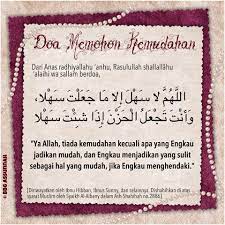 Doa Memohon Kemudahan
Dari Anas radhiyallahu 'anhu, Rasulullah shallallahu
'alaihi wa sallam berdoa,
اللَّهُمَّ لَا سَهْلَ إِلَّا مَا جَعَلْتَهُ سَهْلًا
وَأَنْتَ تَجْعَلُ الْحَزْنَ إِذَا شِئْتَ سَهْلًا
"Ya Allah, tiada kemudahan kecuali apa yang Engkau
jadikan mudah, dan Engkau menjadikan yang sulit
sebagai hal yang mudah, jika Engkau menghendaki."
[Diriwayatkan oleh Ibnu Hibban, Ibnus Sunny, dan selainnya. Dishahihkan di atas
syarat Muslim oleh Syaikh Al-Albany dalam Ash-Shahihah no.2886]